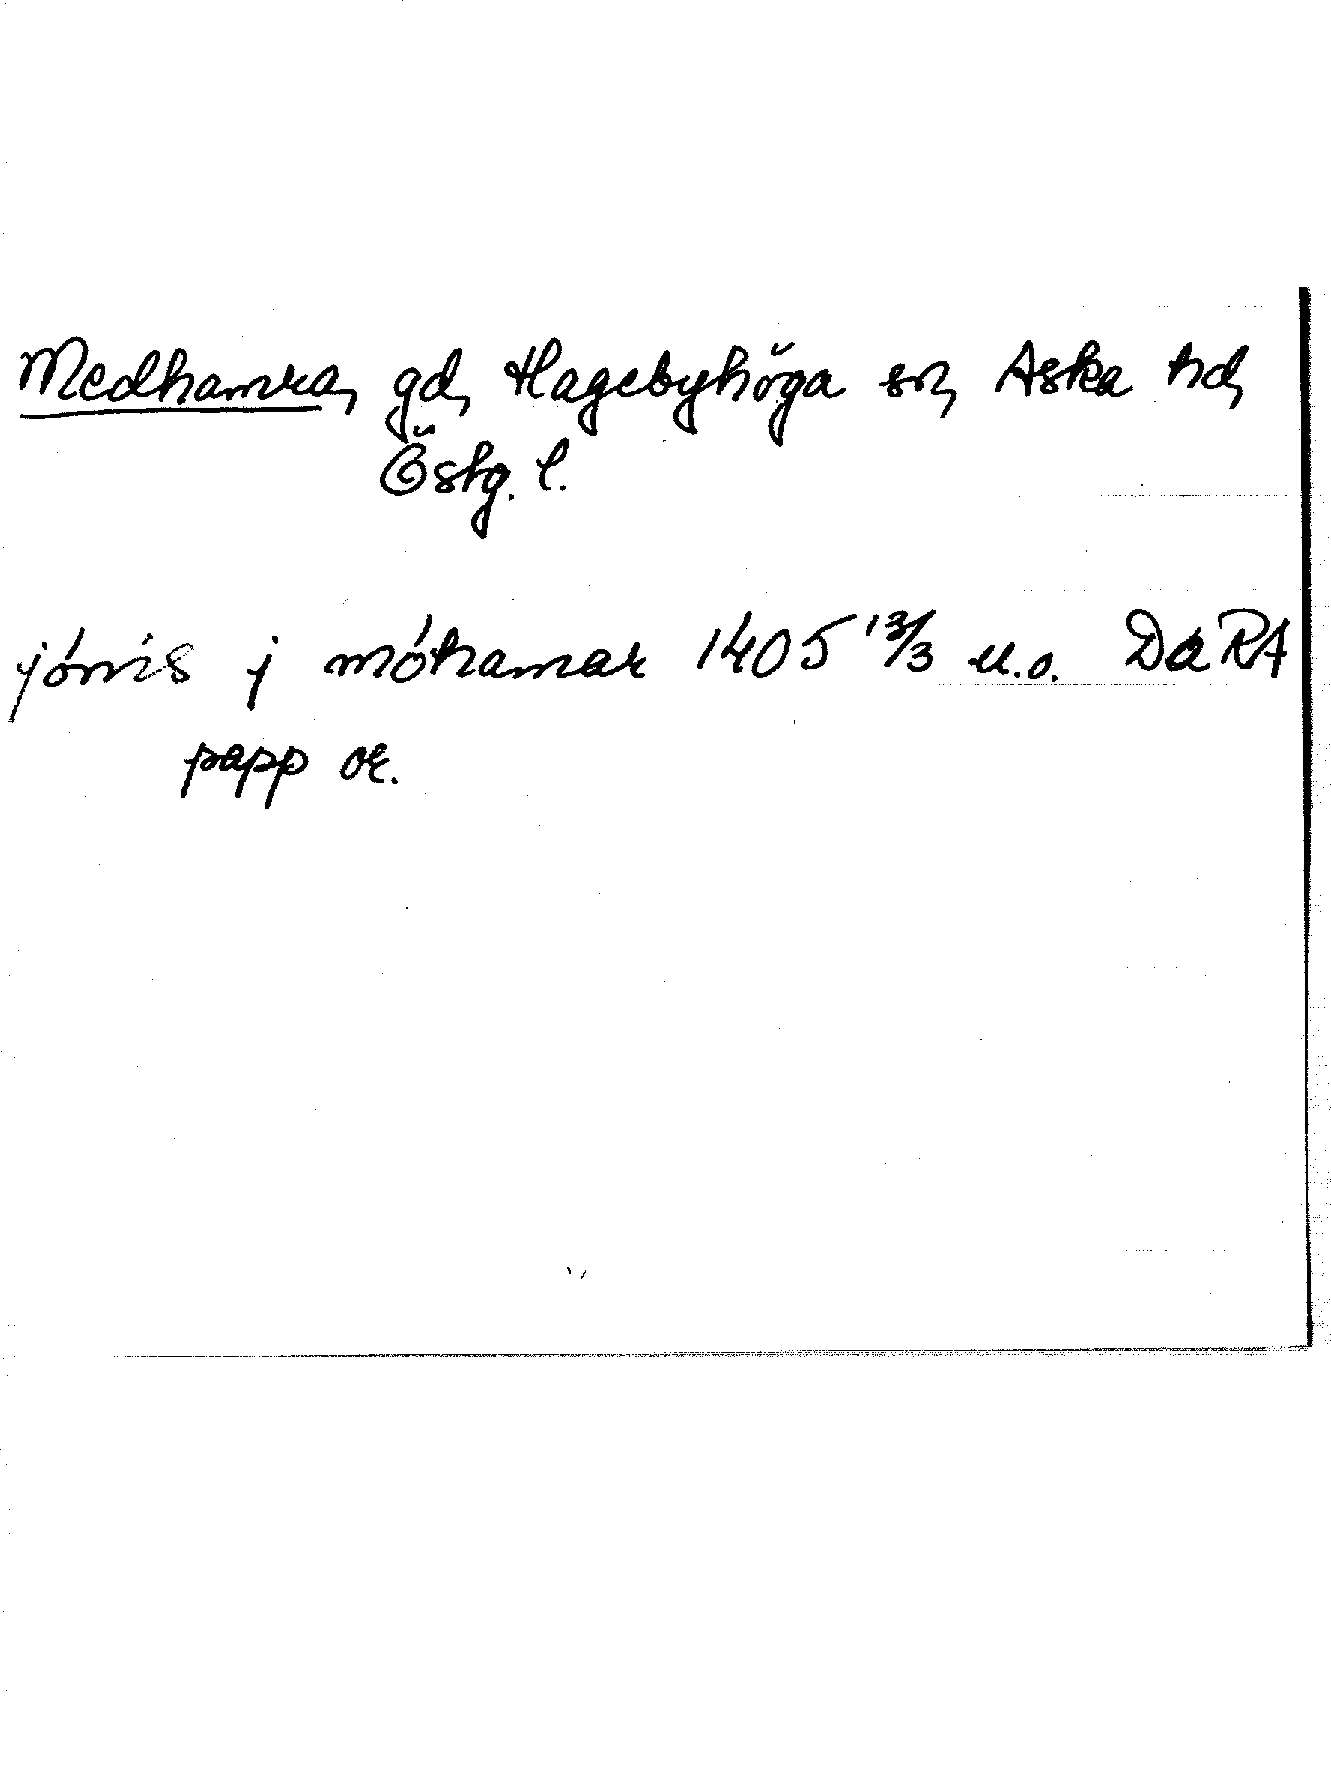 Medhamra, gd, Hagebyhöga sn, Aska hd,
Östg. l.
jónis j móhamar 1405 13/3 u.o. Da RA
papp or.